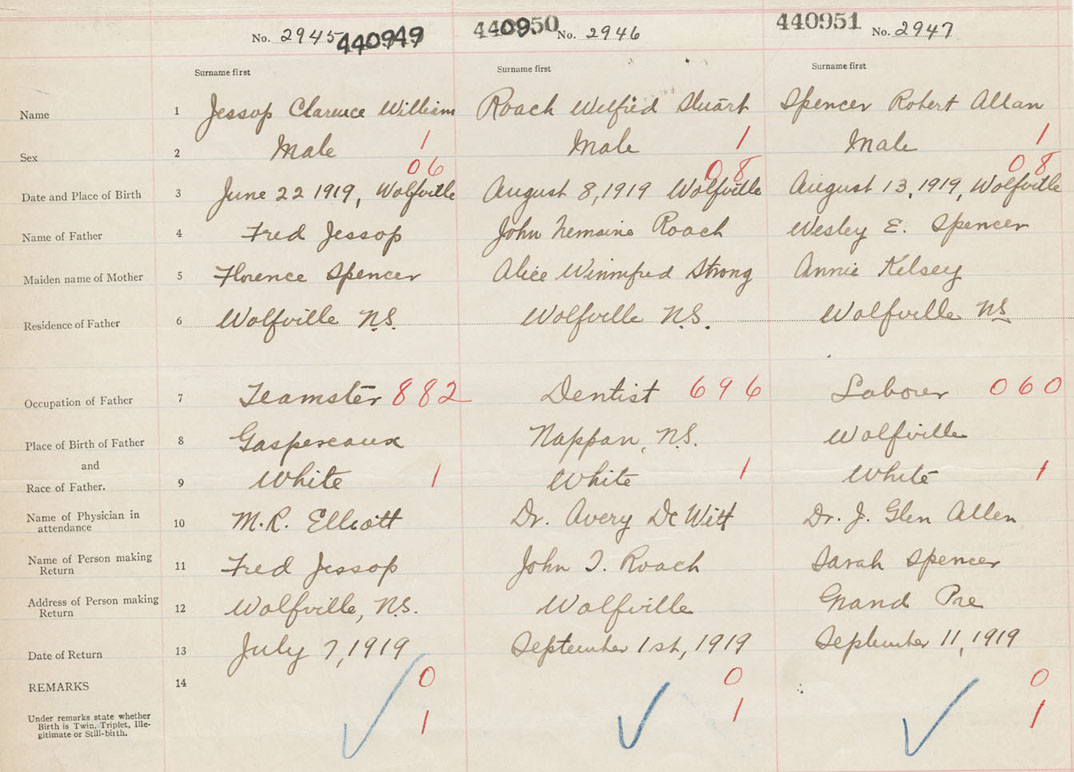 No. 2945 440949 440950 No. 2946 440951 No. 2947
Surname first Surname first Surname first
Name 1 Jessop Clarence William Roach Welfred Stuart Spencer Robert Allan
Sex 2 Male 1 Male 1 Male 1
06 08 08
Date and Place of Birth 3 June 22 1919, Wolfville August 8, 1919 Wolfville August 13, 1919, Wolfville
Name of Father 4 Fred Jessop John Roach Wesley E. Spencer
Maiden name of Mother 5 Florence Spencer Alice Winnifred Strong Annie Kelsey
Residence of Father 6 Wolfville N.S. Wolfville N.S. Wolfville NS
Occupation of Father 7 Teamster 882 Dentist 696 Labourer 060
Place of Birth of Father 8 Gaspereaux Nappan, N.S. Wolfville
and
Race of Father. 9 White 1 White 1 White 1
Name of Physician in
attendance 10 M.R. Elliott Dr. Avery De Witt Dr. J. Glen Allen
Name of Person making
Return 11 Fred Jessop John T. Roach Sarah Spencer
Address of Person making
Return 12 Wolfville, N.S. Wolfville Grand Pre
Date of Return 13 July 7, 1919 September 1st, 1919 September 11, 1919
REMARKS 14 0 0 0
Under remarks state whether
Birth is Twin, Triplet, Ille-
gitimate or Still-birth. 1 1 1